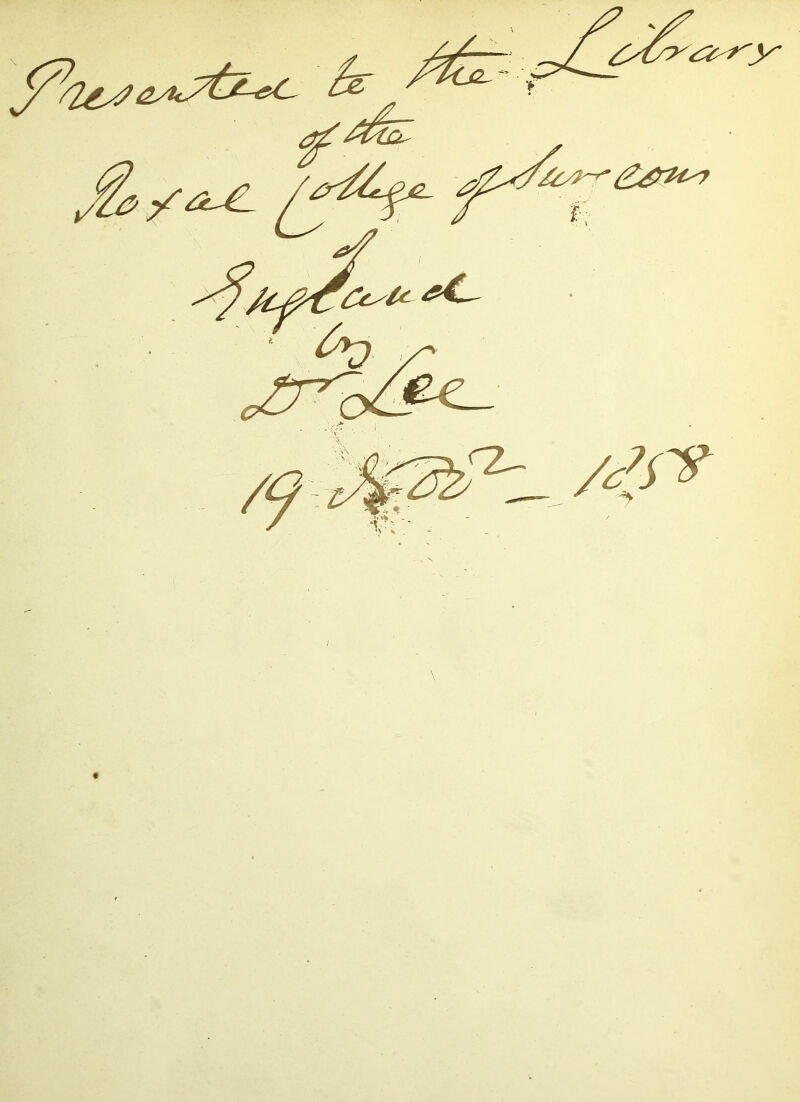 Presented to the Library
of the
Royal College of Surgeons
of
England
by
Dr Lee
19 Novr _ 1858